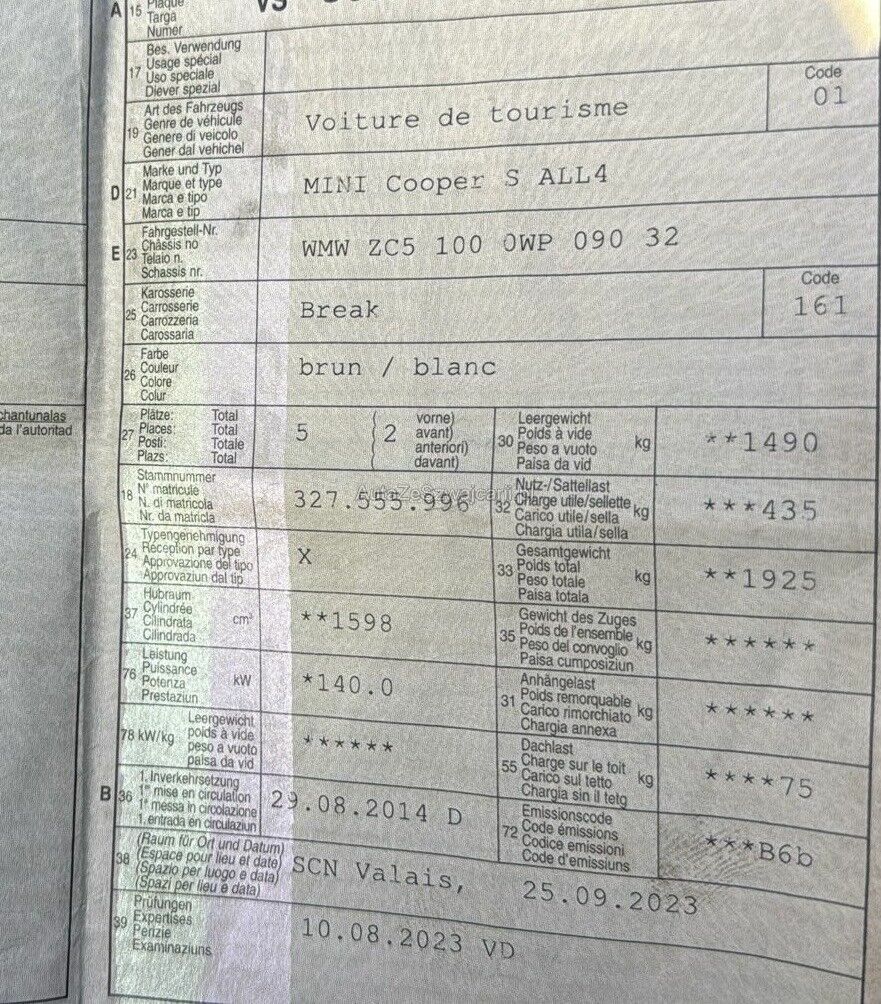 A 15 Plaque
Targa
Numer
VS
17 Bes. Verwendung
Usage spécial
Uso speciale
Diever spezial
19 Art des Fahrzeugs
Genre de véhicule
Genere di veicolo
Gener dal vehichel
Voiture de tourisme
Code
01
D 21 Marke und Typ
Marque et type
Marca e tipo
Marca e tip
MINI Cooper S ALL4
E 23 Fahrgestell-Nr.
Châssis no
Telaio n.
Schassis nr.
WMW ZC5 100 0WP 090 32
25 Karosserie
Carrosserie
Carrozzeria
Carossaria
Break
Code
161
26 Farbe
Couleur
Colore
Colur
brun / blanc
chantunalas
da l'autoritad
27 Plätze: Total
Places: Total
Posti: Totale
Plazs: Total
5
( 2 vorne)
avant)
anteriori)
davant)
30 Leergewicht
Poids à vide
Peso a vuoto
Paisa da vid
kg
**1490
18 Stammnummer
N° matricule
N. di matricola
Nr. da matricla
327.555.996
32 Nutz-/Sattellast
Charge utile/sellette
Carico utile/sella
Chargia utila/sella
kg
***435
24 Typengenehmigung
Réception par type
Approvazione del tipo
Approvaziun dal tip
X
33 Gesamtgewicht
Poids total
Peso totale
Paisa totala
kg
**1925
37 Hubraum
Cylindrée
Cilindrata
Cilindrada
cm³
**1598
35 Gewicht des Zuges
Poids de l'ensemble
Peso del convoglio
Paisa cumposiziun
kg
******
76 Leistung
Puissance
Potenza
Prestaziun
kW
*140.0
31 Anhängelast
Poids remorquable
Carico rimorchiato
Chargia annexa
kg
******
78 kW/kg
Leergewicht
poids à vide
peso a vuoto
paisa da vid
******
55 Dachlast
Charge sur le toit
Carico sul tetto
Chargia sin il tetg
kg
****75
B 36 1. Inverkehrsetzung
1re mise en circulation
1a messa in circolazione
1. entrada en circulaziun
29.08.2014 D
72 Emissionscode
Code émissions
Codice emissioni
Code d'emissiuns
***B6b
38 (Raum für Ort und Datum)
(Espace pour lieu et date)
(Spazio per luogo e data)
(Spazi per lieu e data)
SCN Valais, 25.09.2023
39 Prüfungen
Expertises
Perizie
Examinaziuns
10.08.2023 VD